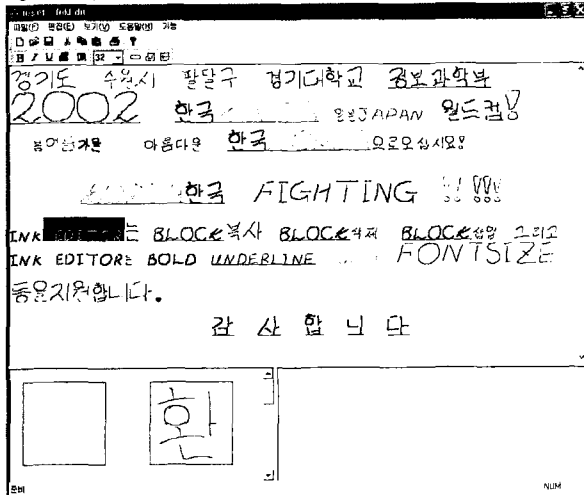 파일(F) 편집(E) 보기(V) 도움말(H) 기능
B I U 32
경기도 수원시 팔달구 경기대학교 정보과학부
2002 한국 일본JAPAN 월드컵!
아름다운 한국 으로오십시요!
한국 FIGHTING !! !!!
INK 는 BLOCK복사 BLOCK삭제 BLOCK삽입 그리고
INK EDITOR는 BOLD UNDERLINE FONTSIZE
등을지원합니다.
감 사 합 니 다
환
준비 NUM